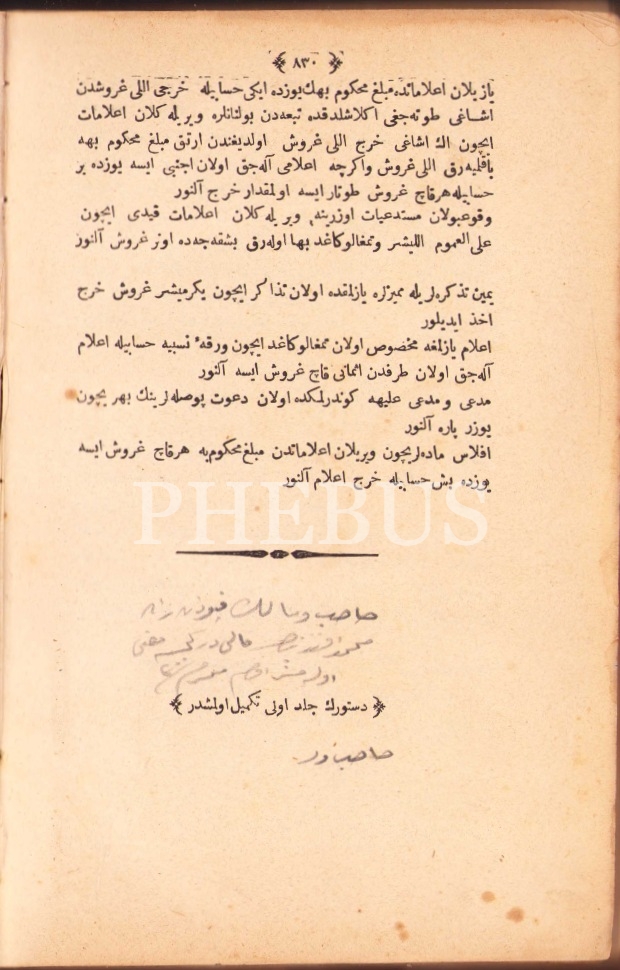 ﴿ ٨٣٠ ﴾
يازيلان اعلاماتده مبلغ محكوم بهك يوزده ايكى حسابيله خرجى اللى غروشدن
اشاغى طوته جغى اكلاشلدقده تبعه دن بولنانلره ويريله كلان اعلامات
ايچون اك اشاغى خرج اللى غروش اولديغندن ارتق مبلغ محكوم بهه
باقلميه رق اللى غروش واكرچه اعلامى آله جق اولان اجنبى ايسه يوزده بر
حسابيله هرقاچ غروش طوتار ايسه اولمقدار خرج آلنور
وقوعبولان مستدعيات اوزرينه ويريله كلان اعلامات قيدى ايچون
على العموم الليشر وتمغالو كاغد بها اوله رق بشقه جه ده اونر غروش آلنور
يمين تذكره لريله مميزلره يازلمقده اولان تذاكر ايچون يكرميشر غروش خرج
اخذ ايديلور
اعلام يازلمغه مخصوص اولان تمغالو كاغد ايچون ورقهٔ نسبيه حسابيله اعلام
آله جق اولان طرفدن اثمانى قاچ غروش ايسه آلنور
مدعى و مدعى عليهه كوندرلمكده اولان دعوت پوصله لرينك بهريچون
يوزر پاره آلنور
افلاس ماده لريچون ويريلان اعلاماتدن مبلغ محكوم به هرقاچ غروش ايسه
يوزده بش حسابيله خرج اعلام آلنور
PHEBUS
صاحب ومالك
﴿ دستورك جلد اولى تكميل اولمشدر ﴾
صاحب